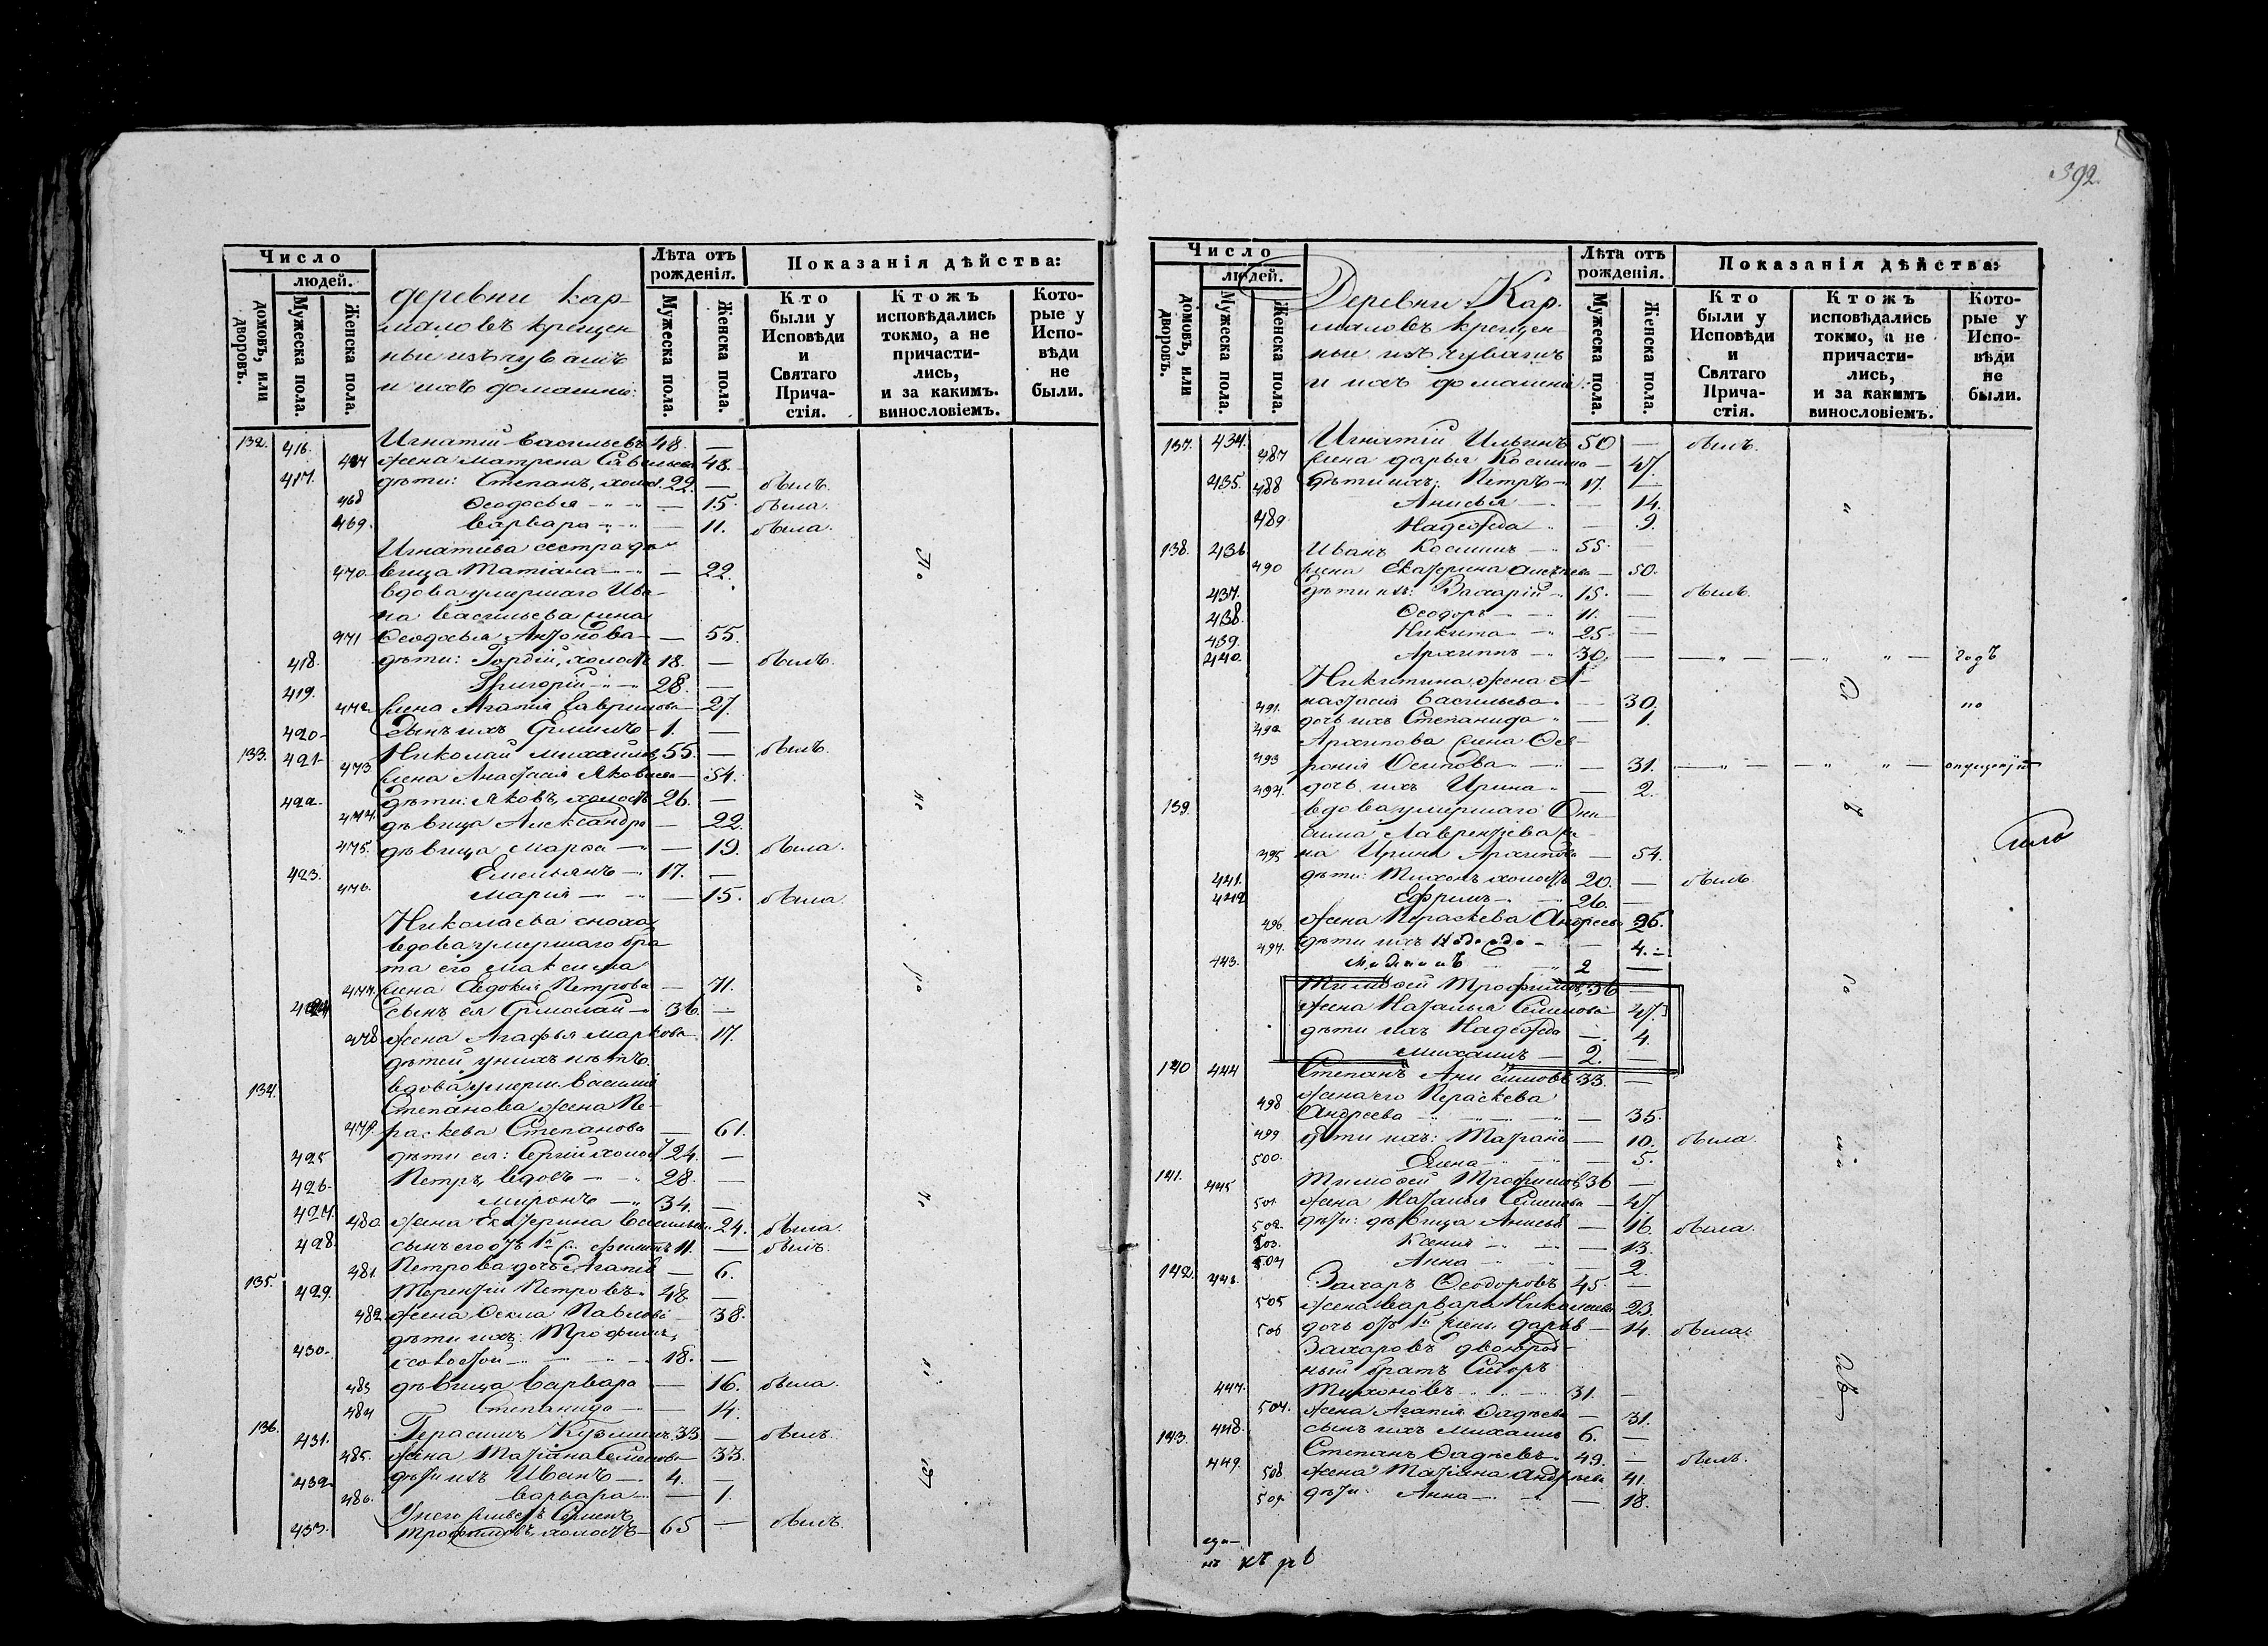 392.
Число
людей.
домовъ, или дворовъ.
Мужеска пола.
Женска пола.
деревни Кар-
маловъ крещен-
ные изъ чувашъ
и ихъ домашніи:
Лѣта отъ рожденія.
Мужеска пола.
Женска пола.
Показанія дѣйства:
Кто были у Исповѣди и Святаго Прича-стія.
Ктожъ исповѣдались токмо, а не причасти-лись, и за какимъ. винословіемъ.
Кото-рые у Испо-вѣди не были.
132. 416. Игнатій Васильевъ 48. —
жена Матрена Савельева 48.
417. дѣти: Степанъ, холост. 22. — былъ.
468 Ѳеодосья — 15. была.
469. Варвара — 11. была.
Игнатіева сестра дѣ-
470. вица Татіана — 22.
вдова умершаго Ива-
на Васильева жена
471 Ѳеодосья Антонова — 55.
418. дѣти: Гордій, холостъ 18. — былъ.
419. Григорій 28. —
472 жена Агапія Гаврилова — 27.
420. сынъ ихъ Ефимъ 1. —
133. 421. Николай Михайловъ 55. — былъ.
473 жена Анастасія Яковлева — 54.
422. дѣти: Яковъ, холостъ 26. —
474. дѣвица Александра — 22.
475. дѣвица Марѳа — 19. была.
423. Емельянъ 17. —
476. Марія — 15. была.
Николаева сноха,
вдова умершаго бра-
та его Максима
477. жена Евдокія Петрова — 71.
424 сынъ ея Ермолай 36. —
478 жена Агафья Маркова 17.
дѣтей у нихъ нѣтъ.
134. вдова умерш. Василія
Степанова жена Пе-
479. раскева Степанова — 61.
425 дѣти ея: Сергій холост 24. —
426. Петръ, вдовъ 28. —
427. Миронъ 34. —
480 жена Екатерина Васильева 24. была.
428. сынъ его отъ 1й ж. Филиппъ 11. — былъ.
481. Петрова дочь Агапія — 6.
135. 429. Терентій Петровъ 48. —
482 жена Ѳекла Павлова — 38.
дѣти ихъ: Трофимъ,
430. холостой 18. —
483 дѣвица Варвара — 16. была.
484 Степанида — 14.
136. 431. Герасимъ Кузминъ 33 — былъ.
485. жена Татіана Семенова 33.
432. дѣти ихъ Иванъ 4. —
486. Варвара — 1.
У него живетъ Семенъ
433. Трофимовъ, холостъ 65 — былъ.
Число
людей.
домовъ, или дворовъ.
Мужеска пола.
Женска пола.
Деревни Кар-
маловъ крещен-
ные изъ чувашъ
и ихъ домашніи:
Лѣта отъ рожденія.
Мужеска пола.
Женска пола.
Показанія дѣйства:
Кто были у Исповѣди и Святаго Прича-стія.
Ктожъ исповѣдались токмо, а не причасти-лись, и за какимъ винословіемъ.
Кото-рые у Испо-вѣди не были.
137. 434. Игнатій Ильинъ 50 — былъ.
487 жена Дарья Космина — 47.
435. 488 дѣти ихъ: Петръ 17. —
Анисья — 14.
489. Надежда — 9.
138. 436 Иванъ Косминъ 55. —
490 жена Екатерина — 50.
437. дѣти ихъ: Захарій 15. — былъ.
438. Ѳеодоръ 11. —
439. Никита 25. —
440. Архиппъ 30. — годъ
Никитина жена А-
491. настасія Васильева — 30. по
492 дочь ихъ Степанида — 1.
Архипова жена Фев-
493 ронія Осипова — 31. опущенію
494. дочь ихъ Ирина — 2.
139. вдова умершаго Они-
сима Лаврентіева же-
495 на Ирина Архипова — 54.
441. дѣти: Тихонъ холостъ 20. — былъ.
442 Ефремъ 26. —
496. жена Пераскева Андреева 26.
497. дѣти ихъ — 4.
443. 2 —
Тимоѳей Трофимовъ, 36 —
жена Наталья Семенова 47.
дѣти ихъ Надежда — 4.
Михаилъ 2. —
140 444 Степанъ Анисимовъ 33. —
жена его Пераскева
498 Андреева — 35.
499 дѣти ихъ: Татіана — 10. была.
500. Елена — 5.
141. 445 Тимоѳей Трофимовъ 36 —
501. жена Наталья Семенова — 47.
502. дѣти: дѣвица Анисья — 16. была.
503. Ксенія — 13.
504 Анна — 2.
142. 446. Захаръ Ѳеодоровъ 45. —
505 жена Варвара Николаева 23.
506 дочь отъ 1й жены Дарья — 14. была.
Захаровъ двоюрод-
ный братъ Сидоръ
447. Тихоновъ 31. —
507. жена Агапія Фадѣева — 31.
448. сынъ ихъ Михаилъ 6. —
143. 449. Степанъ Фадѣевъ 49. — былъ.
508. жена Татіана Андреева 41.
509. дѣти: Анна — 18.